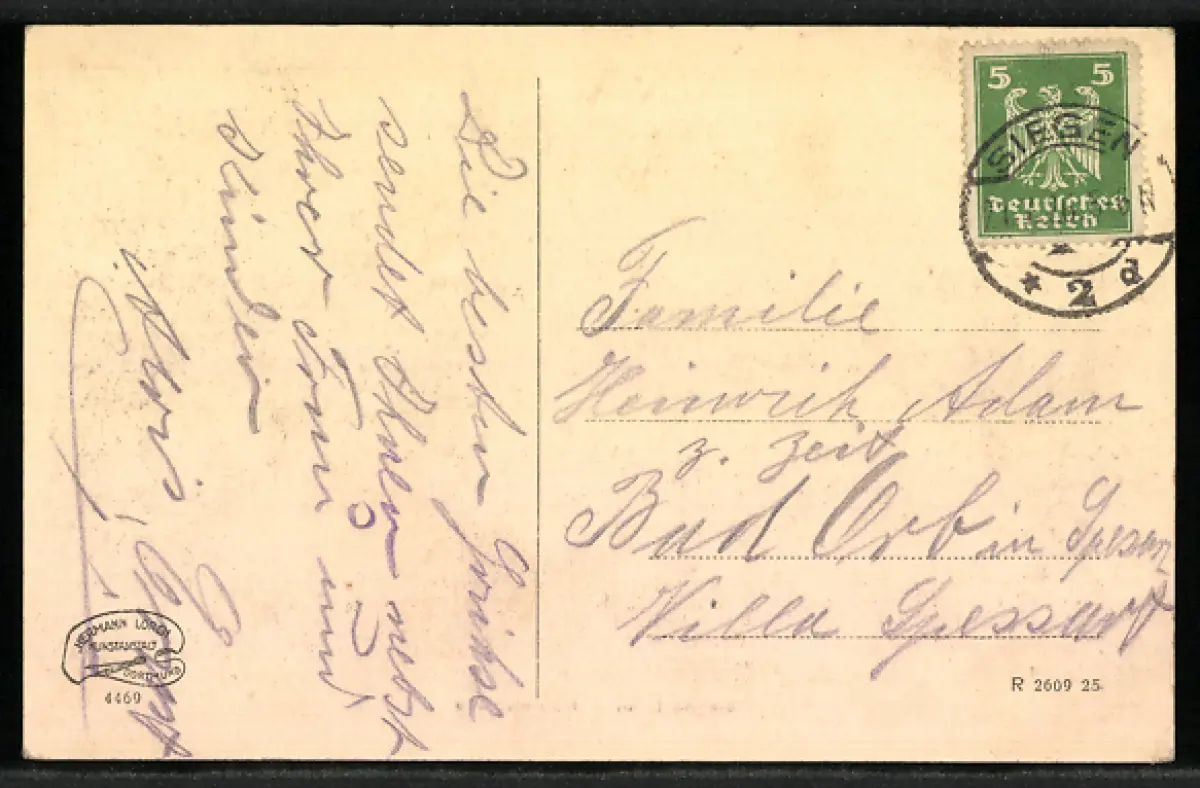 Die besten Grüße
sendet Ihnen nebst
Ihrer Frau und
Kinder
5 5
Deutsches
Reich
SIEGEN
* 2 d
Familie
Heinrich Adam
z. Zeit
Bad Orb in Spessart
Villa Spessart
HERMANN LORCH
KUNSTANSTALT
DORTMUND
4469
R 2609 25